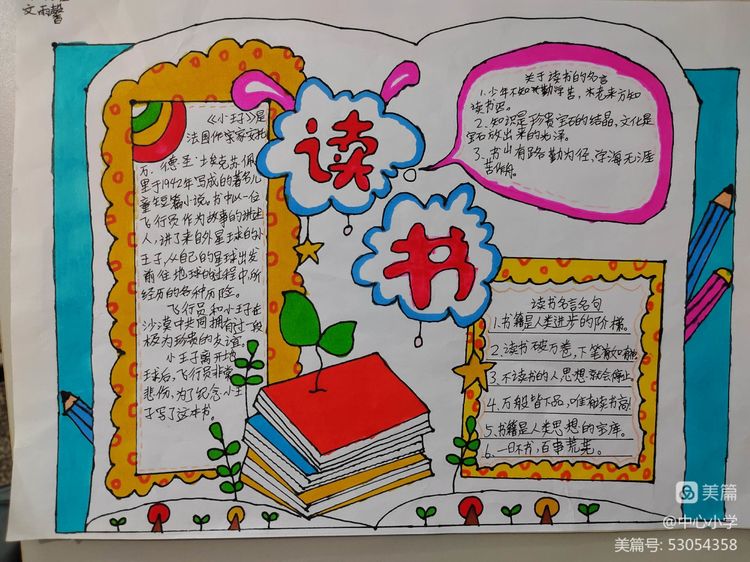 文雨馨
《小王子》是
法国作家安托
万·德·圣·埃克苏佩
里于1942年写成的著名儿
童短篇小说。书中以一位
飞行员作为故事的讲述
人，讲了来自外星球的小
王子，从自己的星球出发
前往地球的过程中，所
经历的各种历险。
飞行员和小王子在
沙漠中共同拥有过一段
极为珍贵的友谊。
小王子离开地
球后，飞行员非常
悲伤，为了纪念小王
子写了这本书。
读
书
关于读书的名言
1.少年不知勤学苦，老来方知
读书迟。
2.知识是珍贵宝石的结晶，文化是
宝石放出来的光泽。
3.书山有路勤为径，学海无涯
苦作舟。
读书名言名句
1.书籍是人类进步的阶梯。
2.读书破万卷，下笔
3.不读书的人，思想就会停止
4.万般皆下品，唯有读书高
5.书籍是人类思想的宝库。
6.一日不书，百事荒芜。
美篇
@中心小学
美篇号: 53054358